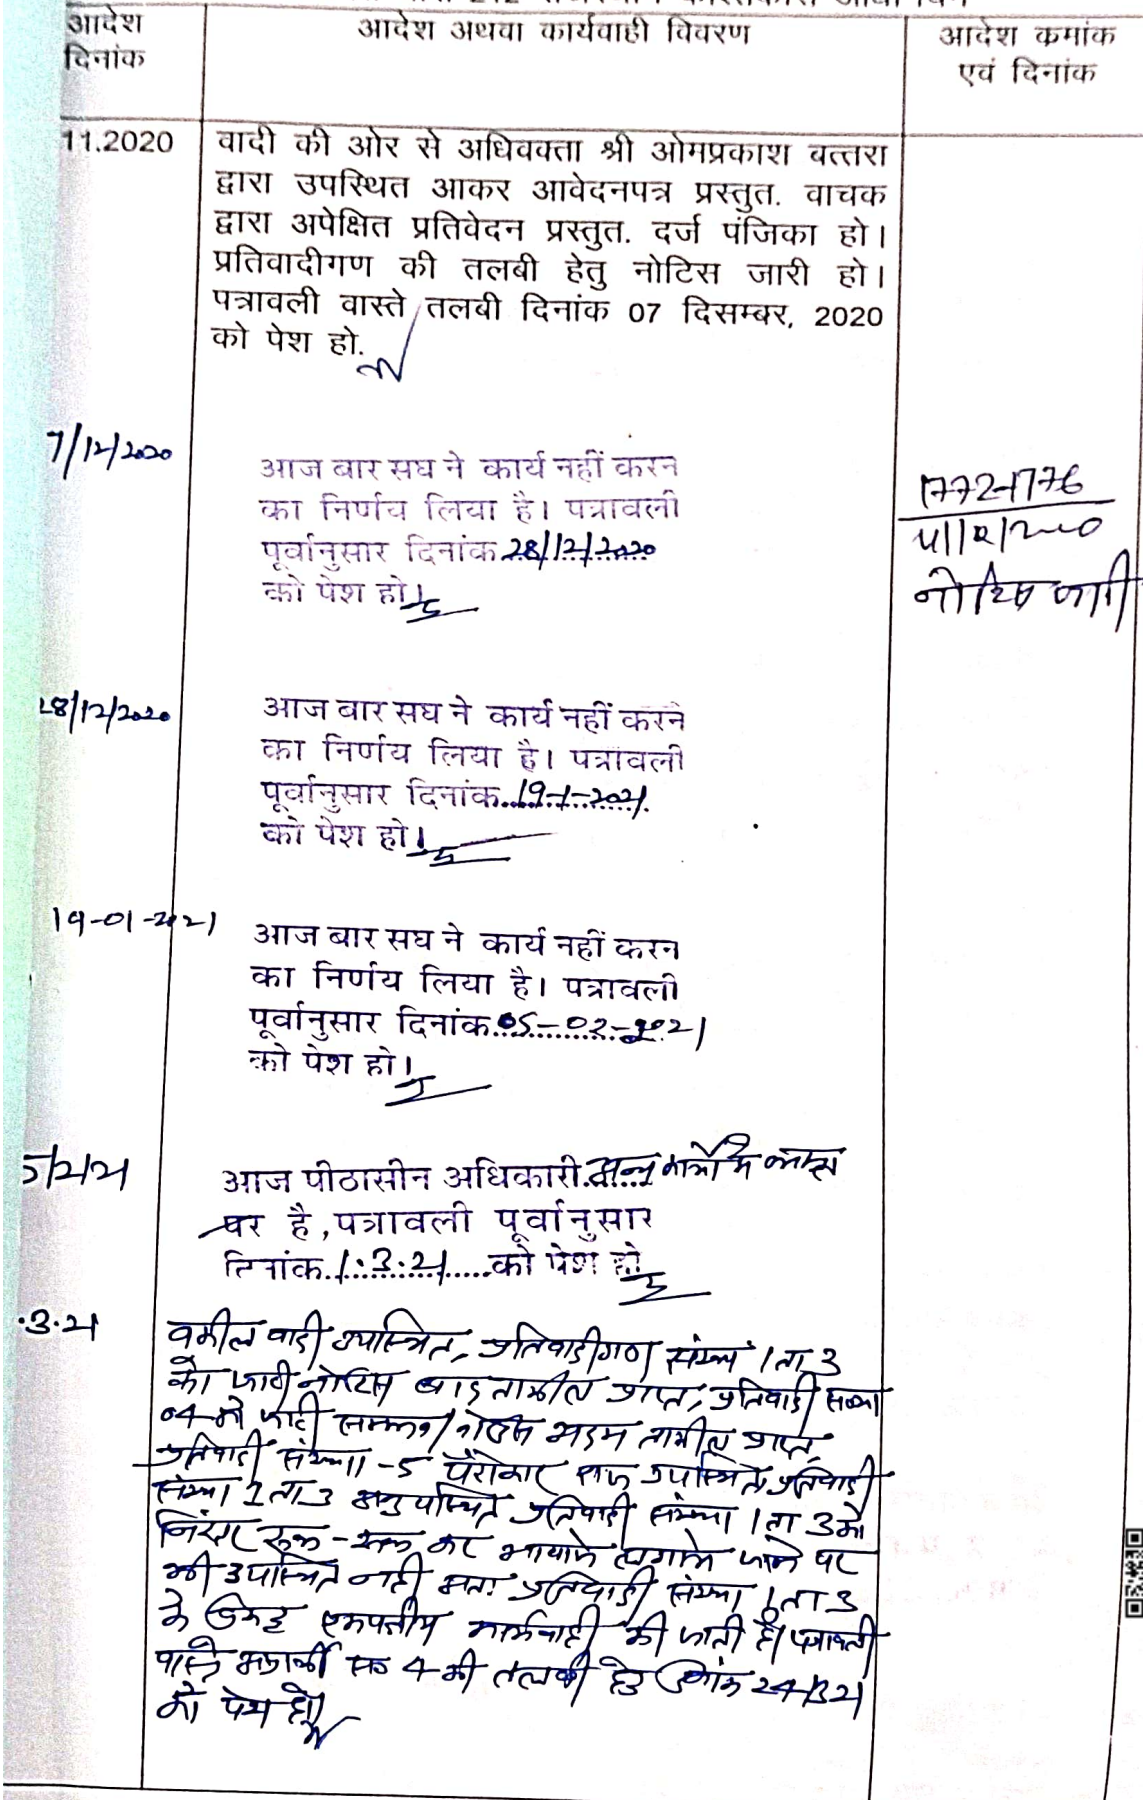 आदेश दिनांक
आदेश अथवा कार्यवाही विवरण
आदेश कमांक एवं दिनांक
11.2020
वादी की ओर से अधिवक्ता श्री ओमप्रकाश बत्तरा
द्वारा उपस्थित आकर आवेदनपत्र प्रस्तुत. वाचक
द्वारा अपेक्षित प्रतिवेदन प्रस्तुत. दर्ज पंजिका हो।
प्रतिवादीगण की तलबी हेतु नोटिस जारी हो।
पत्रावली वास्ते तलबी दिनांक 07 दिसम्बर, 2020
को पेश हो.
7/12/2020
आज बार सघ ने कार्य नहीं करन
का निर्णय लिया है। पत्रावली
पूर्वानुसार दिनांक 28/12/2020
को पेश हो।
1772-1776
2020
नोटिस जारी
28/12/2020
आज बार सघ ने कार्य नहीं करने
का निर्णय लिया है। पत्रावली
पूर्वानुसार दिनांक 19-1-2021
को पेश हो।
19-01-2021
आज बार सघ ने कार्य नहीं करन
का निर्णय लिया है। पत्रावली
पूर्वानुसार दिनांक 05-02-2021
को पेश हो।
5/2/21
आज पीठासीन अधिकारी
पर है, पत्रावली पूर्वानुसार
दिनांक 1.3.21 को पेश हो
.3.21
वकील वादी उपस्थित, प्रतिवादीगण संख्या 1 ता 3
को जारी नोटिस बाद तामील प्राप्त, प्रतिवादी संख्या
04 को जारी नोटिस अदम तामील प्राप्त,
प्रतिवादी संख्या -5 पैरोकार उपस्थित प्रतिवादी
संख्या 1 ता 3 अनुपस्थित प्रतिवादी संख्या 1 ता 3 को
कर आवाजे लगाने जाने पर
भी उपस्थित नही अतः प्रतिवादी संख्या 1 ता 3
के विरुद्ध एकपक्षीय कार्यवाही की जाती है। पत्रावली
वास्ते 4 की तलबी हेतु दिनांक 24/3/21
को पेश हो।